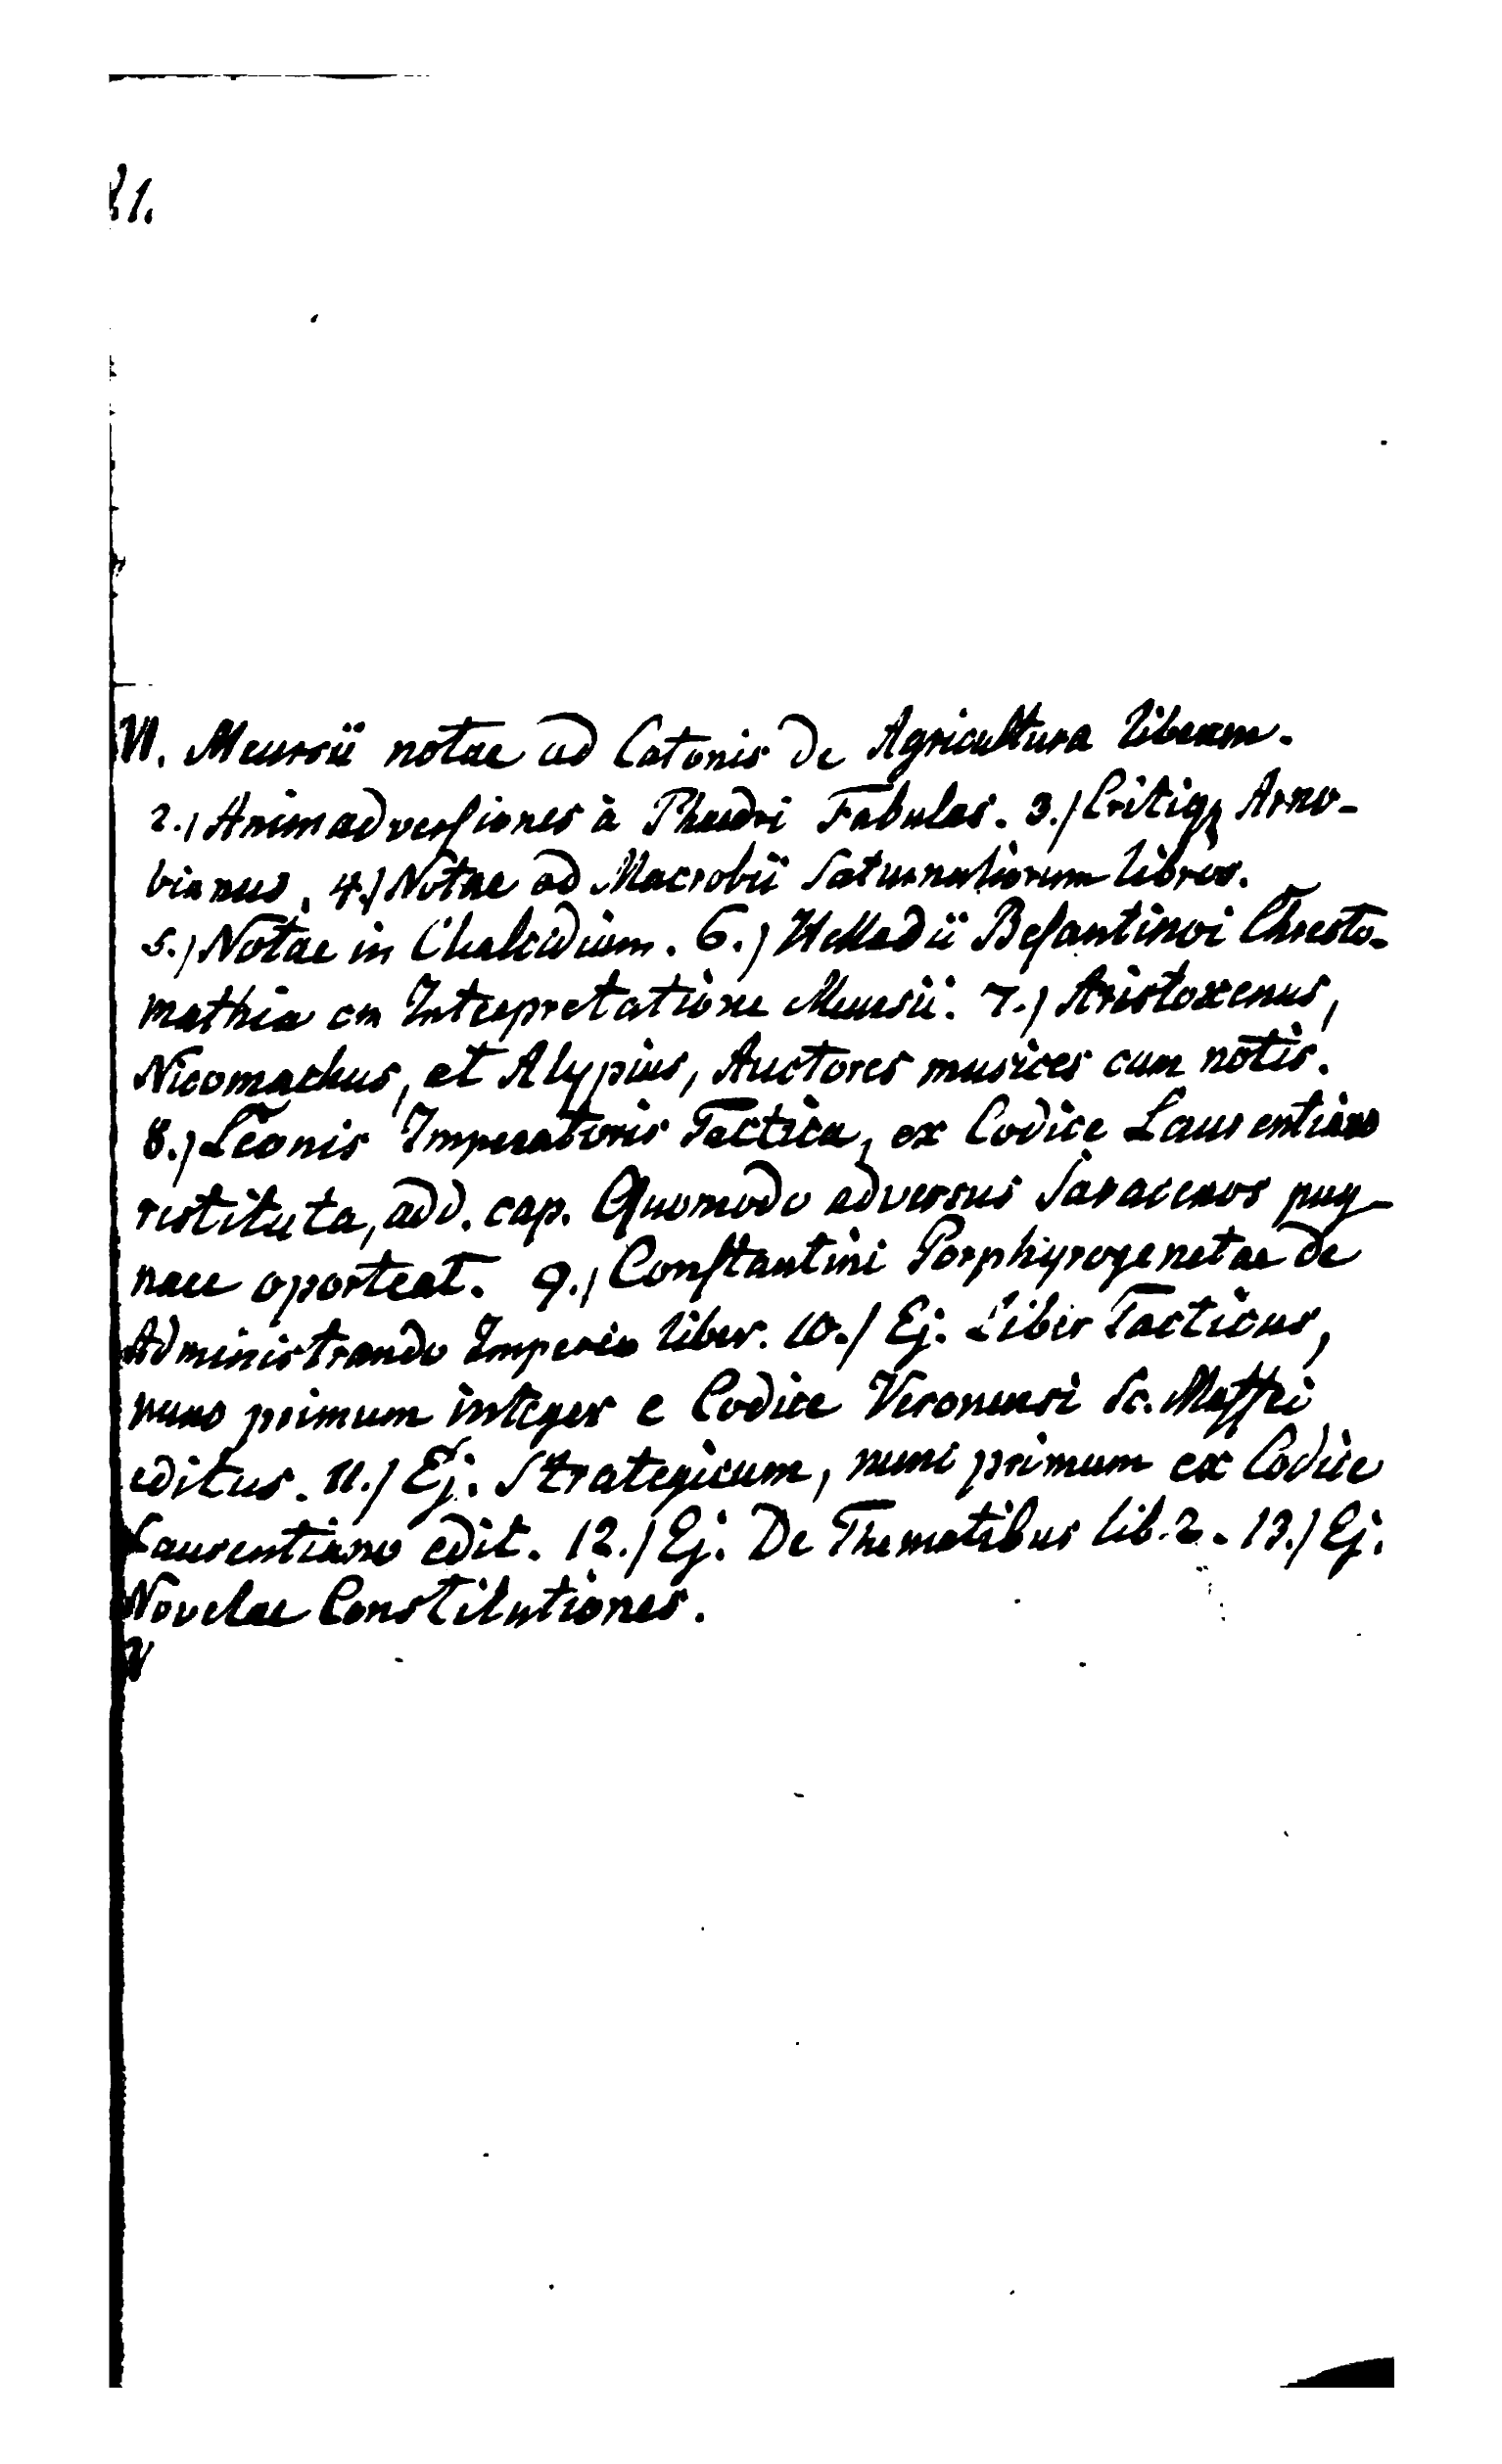 81.
VI. Meursii notae ad Catonis de Agricultura librum.
2.) Animadversiones à Phaedri Fabulas. 3.) Critiqz Arno-
bianus. 4.) Notae ad Macrobii Saturnaliorum libros.
5.) Notae in Chalcidium. 6.) Helladii Besantinoi Chresto-
mathia cm Interpretatione Meursii. 7.) Aristoxenus,
Nicomachus, et Alypius, Auctores musices cum notis.
8.) Leonis Imperatoris Tactica, ex Codice Laurentiano
restituta, add. cap. Quomodo adversus Saracenos pug-
nare oporteat. 9.) Constantini Porphyrogenetae de
Administrando Imperio liber. 10.) Ej. Liber Tacticus,
nunc primum integer e Codice Veronensi Sc. Maffei
editus. 11.) Ej. Strategicum, nunc primum ex Codice
Laurentiano edit. 12.) Ej. De Thematibus lib. 2. 13.) Ej.
Novelae Constitutiones.